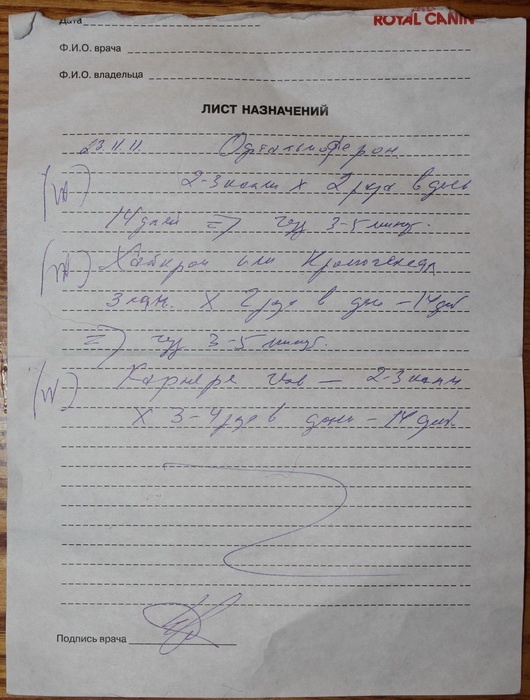 Дата
ROYAL CANIN
Ф.И.О. врача
Ф.И.О. владельца
ЛИСТ НАЗНАЧЕНИЙ
23.11.11. Офтальмоферон
2-3 капли х 2 раза в день
14 дней => через 3-5 минут.
или
3 кап. х 2 раза в день - 14 дней
=> через 3-5 минут.
Корнере гель — 2-3 капли
х 3-4 раза в день - 14 дней.
Подпись врача